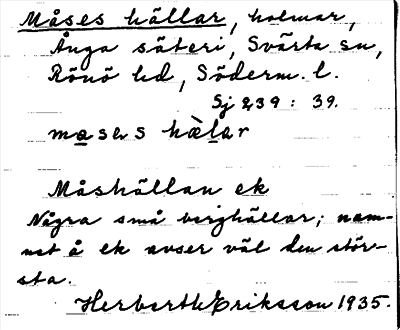 Måses hällar, holmar,
Ånga säteri, Svärta sn,
Rönö hd, Söderm. l.
Sj 239 : 39.
måses hä̀lar
Måshällan ek
Några små berghällar; nam-
net å ek avser väl den stör-
sta.
Herbarth Eriksson 1935.